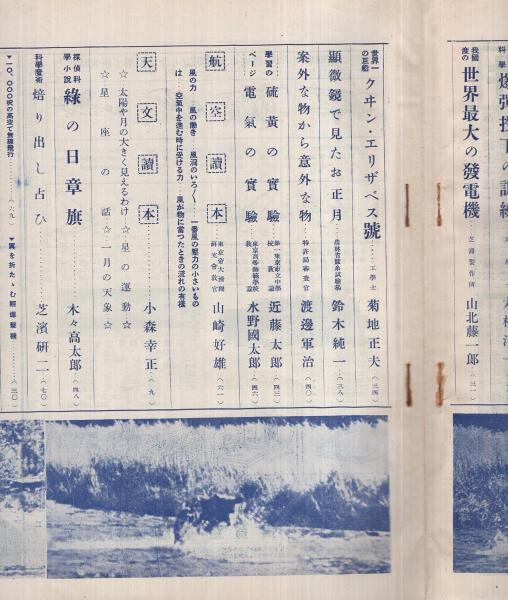 科學 爆彈投下の訓練
我國一の 世界最大の發電機……芝浦製作所 山北藤一郎…(三一)
世界一の巨船 クヰン・エリザベス號……工學士 菊地正夫…(三四)
顯微鏡で見たお正月…農林省蠶糸試驗場 鈴木純一…(三八)
案外な物から意外な物…特許局審査官 渡邊軍治…(四〇)
學習のページ
硫黄の實驗…第一東京市立中學校教諭 近藤太郎…(四三)
電氣の實驗…東京高等師範學校教諭 水野國太郎…(四六)
航空讀本…東京帝大講師 研究會教官 山崎好雄…(六一)
風の力…風の働き…風洞のいろ〳〵…一番風の壓力の小さいもの
は…空氣中を進む時に受ける力…風が物に當つたときの流れの有樣
天文讀本…小森幸正…(九)
☆太陽や月の大きく見えるわけ☆星の運動☆
☆星座の話☆一月の天象☆
探偵科學小說 綠の日章旗…木々高太郎…(四八)
科學魔術 焙り出し占ひ…芝濱研二…(七〇)
▼一〇、〇〇〇呎の高空で無線飛行………(六九)
▼翼を折たゝむ輕爆擊機……(三〇)